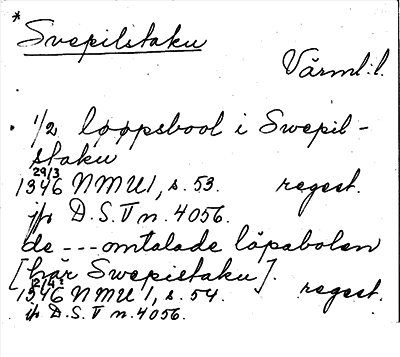 *
Svepilstaku
Värml. l.
1/2 løøpsbool i Swepil-
staku
29/3
1346 NMU 1, s. 53. regest.
jfr D.S. V n. 4056.
de --- omtalade löpabolen
[här Swepistaku].
2/4
1346 NMU 1, s. 54. regest.
jfr D.S. V n. 4056.